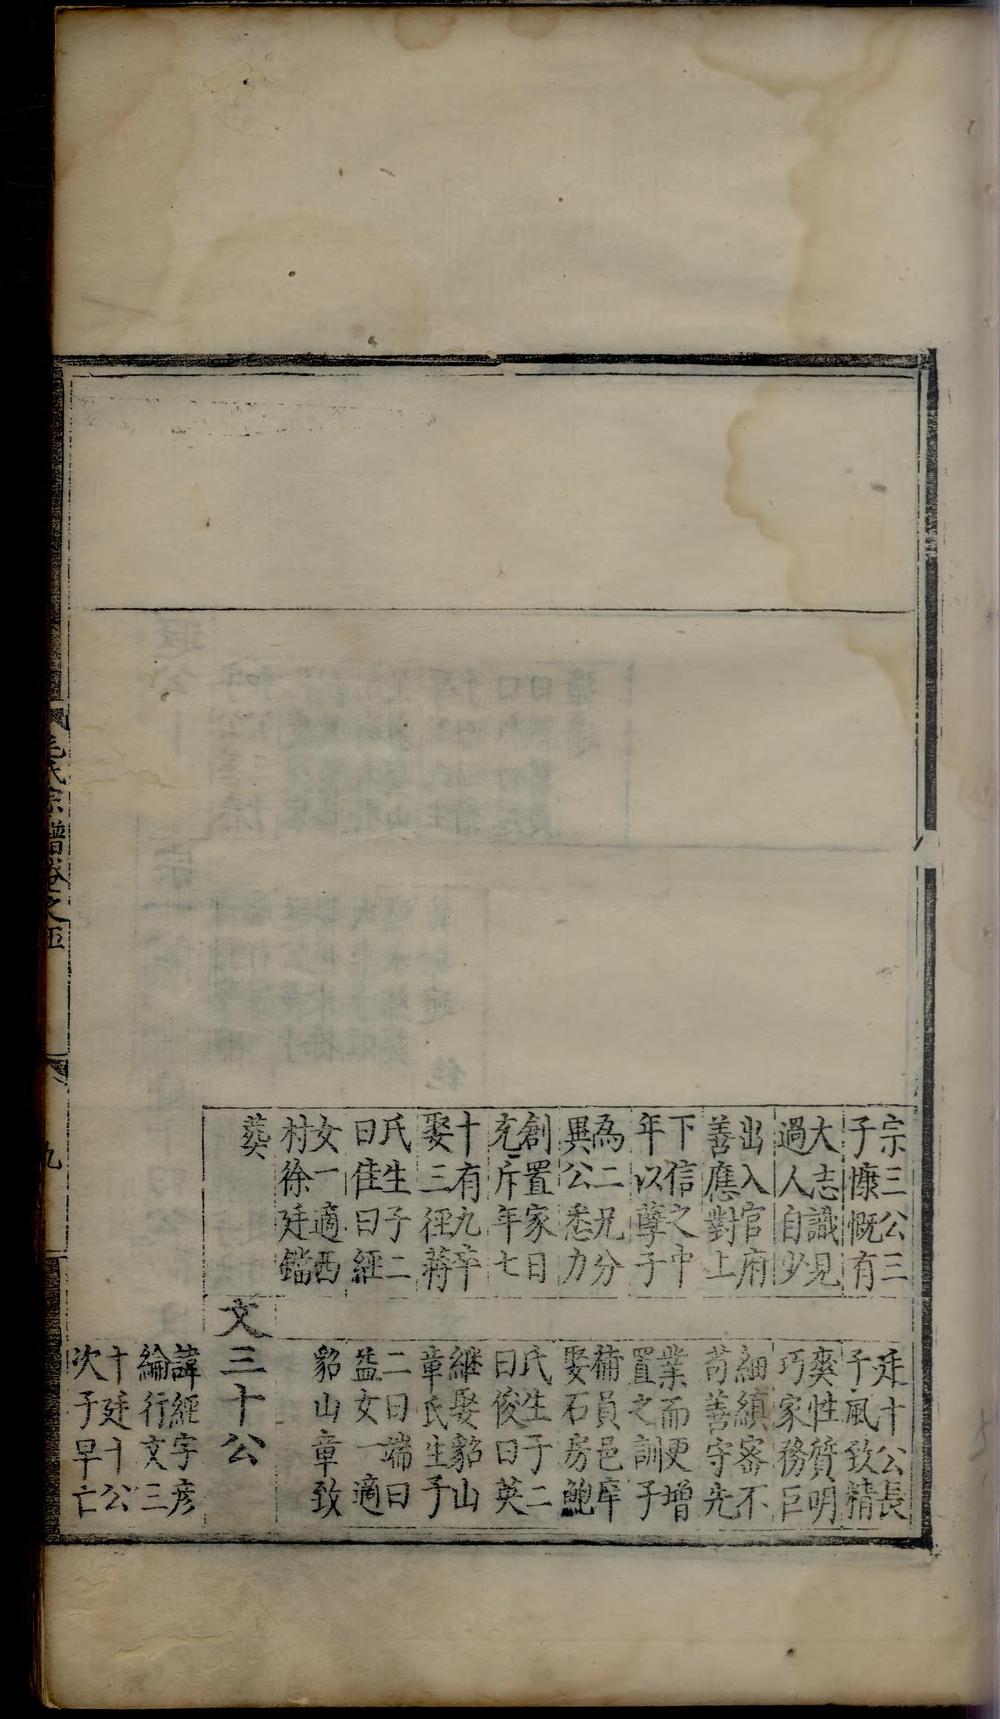 宗三公三
子慷慨有
大志識見
過人自少
出入官府
善應對上
下信之中
年以孽子
為二兄分
異公悉力
創置家日
充斥年七
十有九卒
娶三徑蔣
氏生子二
曰佳曰經
女一適西
村徐廷鐺
葵
廷十公長
子風致精
爽性質明
巧家務巨
細縝密不
苟善守先
業而更增
置之訓子
補員邑庠
娶石房鮑
氏生子二
曰俊曰英
繼娶貂山
章氏生子
二曰端曰
益女一適
貂山章致
文三十公
諱經字彥
綸行文三
十廷十公
次子早亡
毛氏宗譜卷之五
九